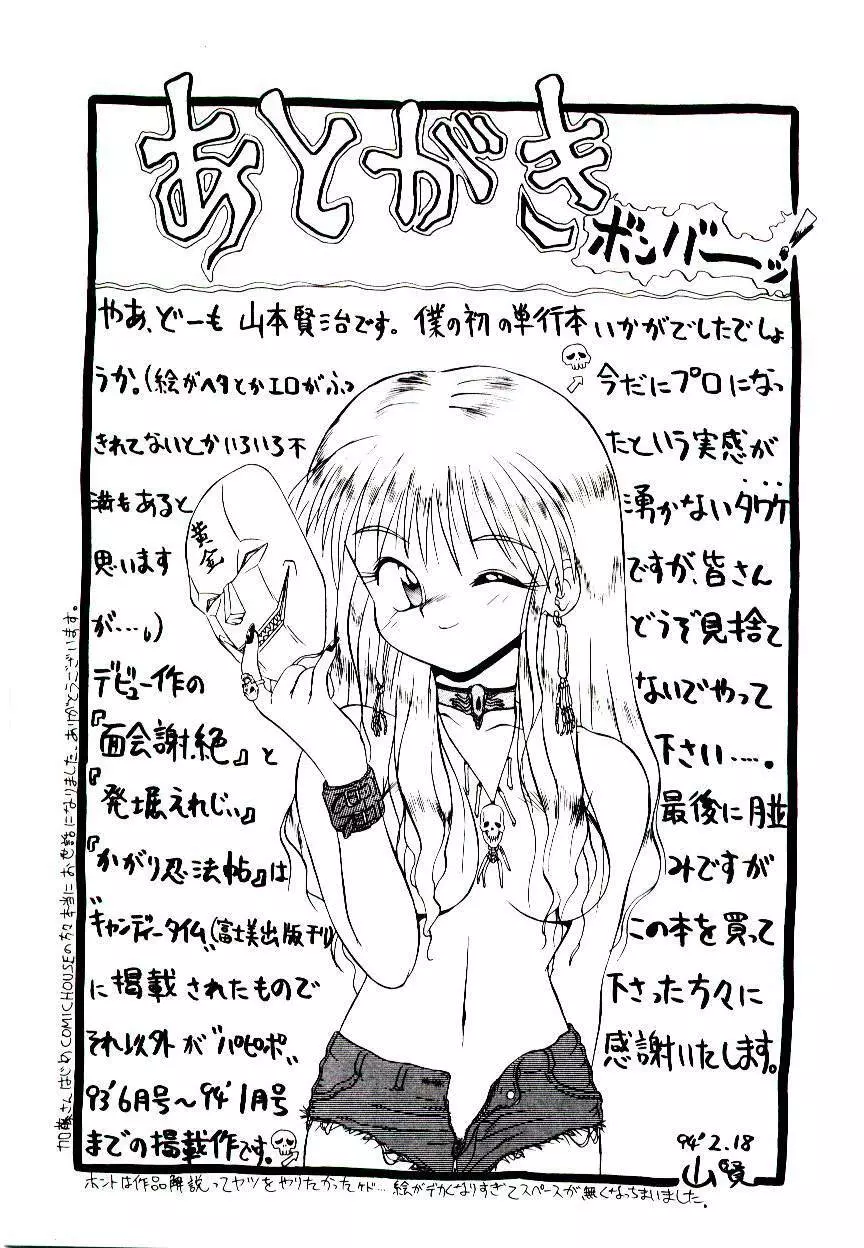 あとがき
ボンバーッ!
やあ、どーも 山本賢治です。僕の初の単行本いかがでしたでしょ
うか。(絵がヘタとかエロがふっ
きれてないとかいろいろ不
満もあると
思います
が….)
デビュー作の
『面会謝絶』と
『発掘えれじぃ』
『かがり忍法帖』は
"キャンディータイム"(富士美出版刊)
に掲載されたもので
それ以外が"パピポ"
93'6月号〜94'1月号
までの掲載作です。
今だにプロになっ
たという実感が
湧かないタワケ
ですが、皆さん
どうぞ見捨て
ないでやって
下さい….。
最後に月並
みですが
この本を買って
下さった方々に
感謝いたします。
94'2.18
山賢
黄金
加藤さんはじめCOMIC HOUSEの方々本当にお世話になりました。ありがとうございます。
ホントは作品解説ってヤツをやりたかったケド…絵がデカくなりすぎてスペースが無くなっちまいました。